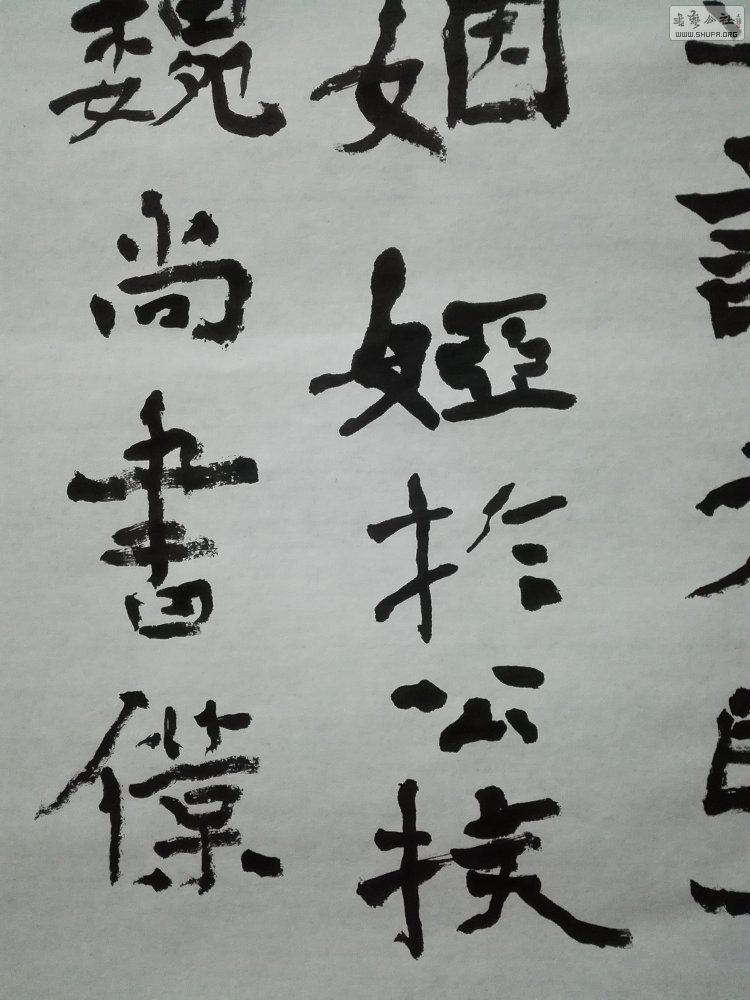 姻婭於公族
魏尚書僕
书艺公社
WWW.SHUFA.ORG